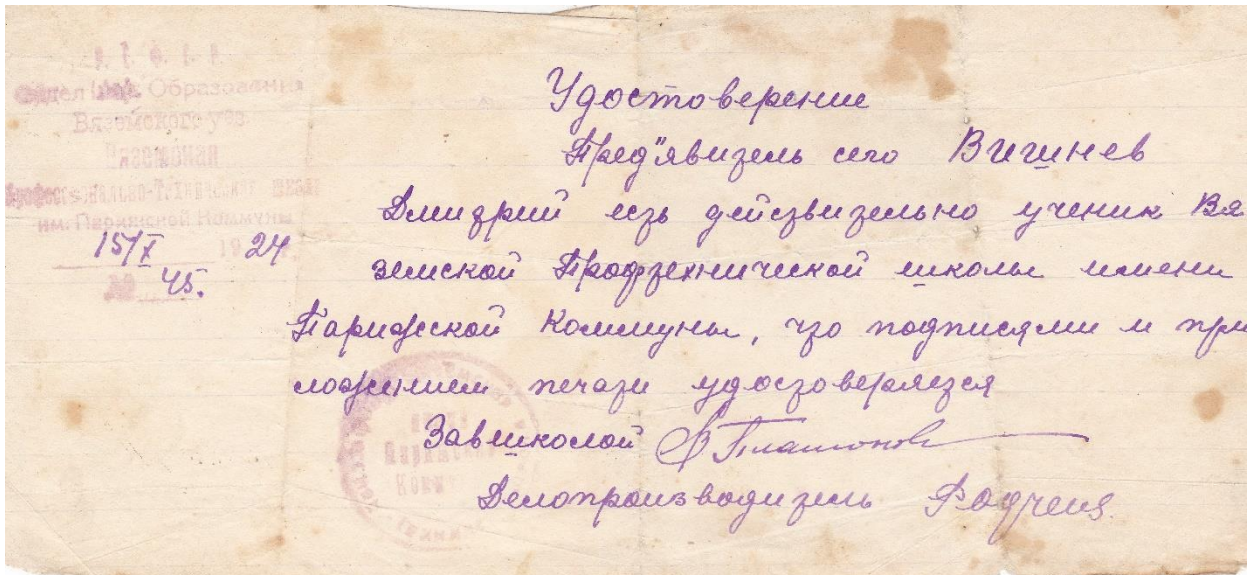 Р. С. Ф. С. Р.
Отдел Нар. Образования
Вяземского уез.
Вяземская
Профессионально-Техническая школа
им. Парижской Коммуны
15/I 1924
№ 45.
Удостоверение
Пред"явитель сего Вишнев
Дмитрий есть действительно ученик Вя
земской Профтехнической школы имени
Парижской Коммуны, что подписями и при
ложением печати удостоверяется
Завшколой Платонов
Делопроизводитель
Парижской